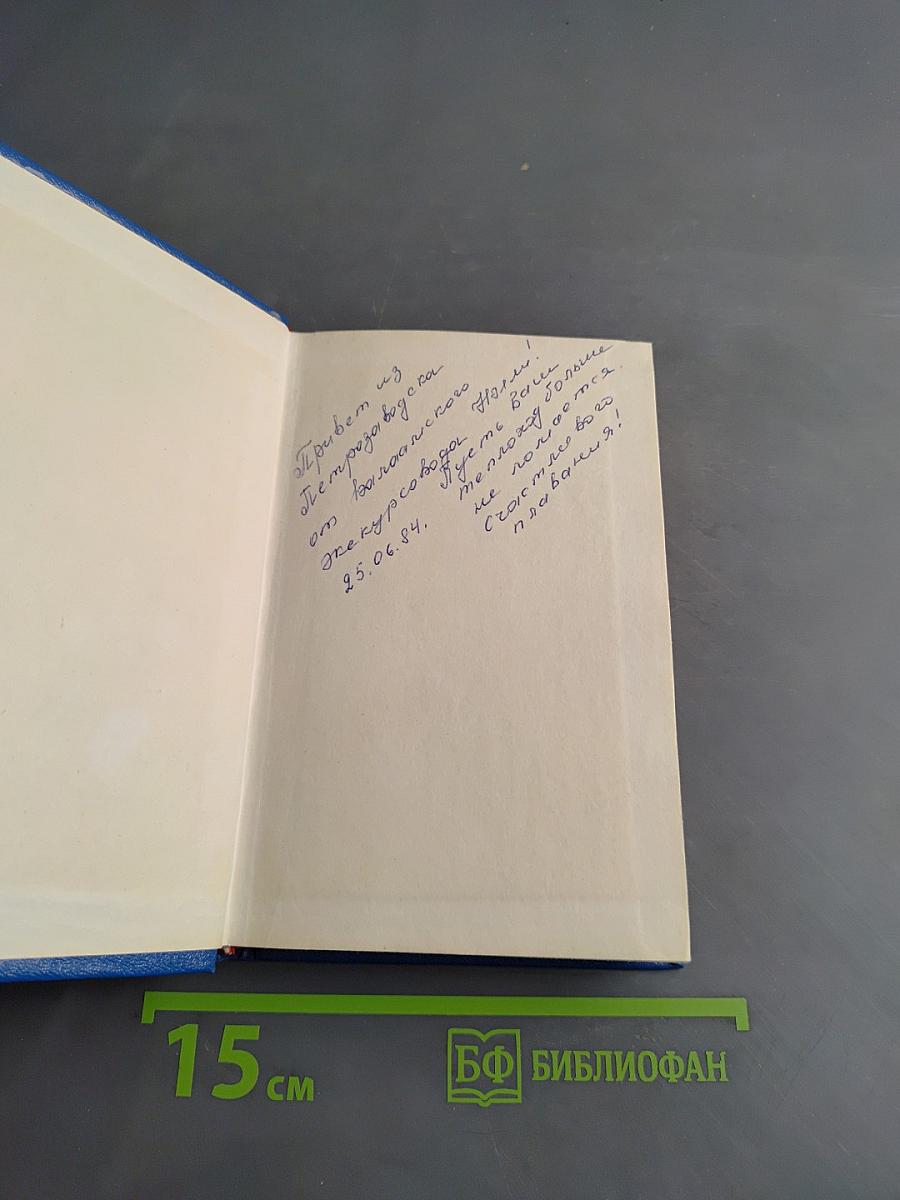 Привет из
Петрозаводска
от Валаамского
экскурсовода Нэли!
25.06.84.
Пусть ваш
теплоход больше
не ломается.
Счастливого
плавания!
15 см
БФ БИБЛИОФАН